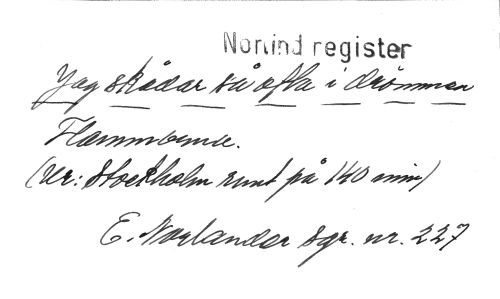 Norlind register
Jag skådar så ofta i drömmen
Flammberide.
(ur: Stockholm runt på 140 min)
E. Norlander sgr. nr. 227